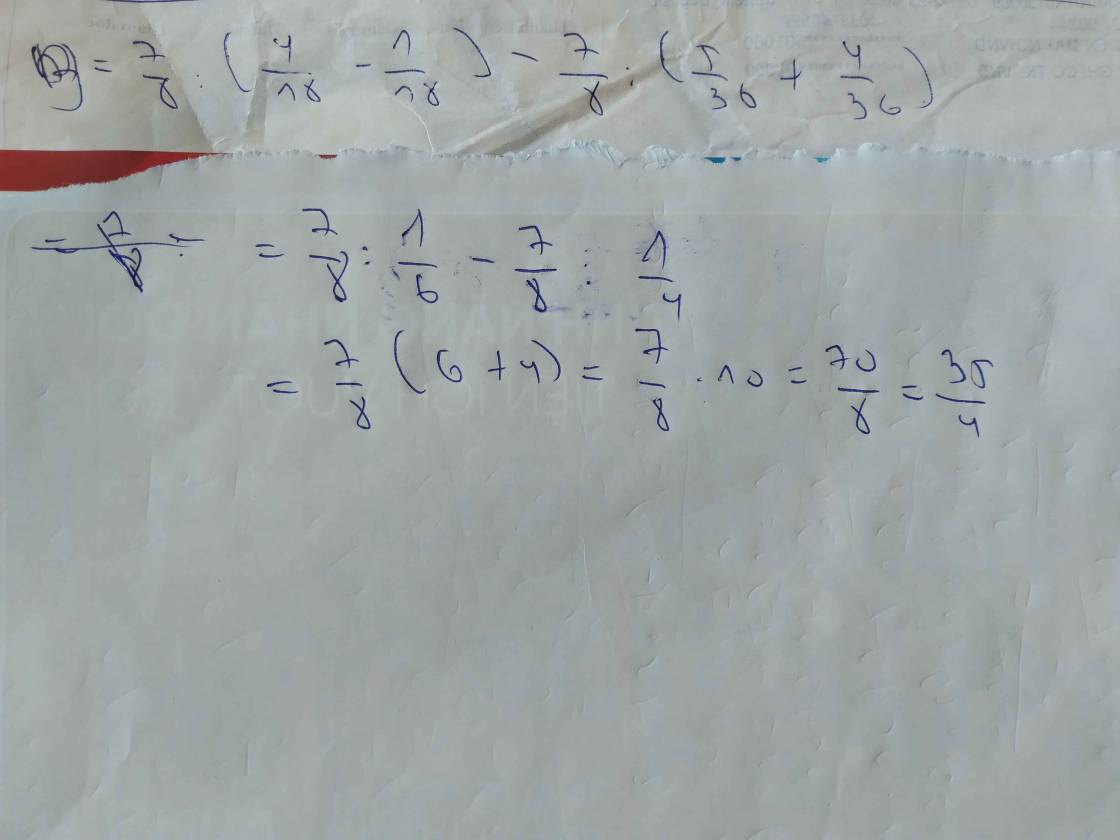 = 7/8 : (4/18 - 1/18) - 7/8 : (5/36 + 4/36)
= 7/8 : 1/6 - 7/8 : 1/4
= 7/8 (6 + 4) = 7/8 . 10 = 70/8 = 35/4